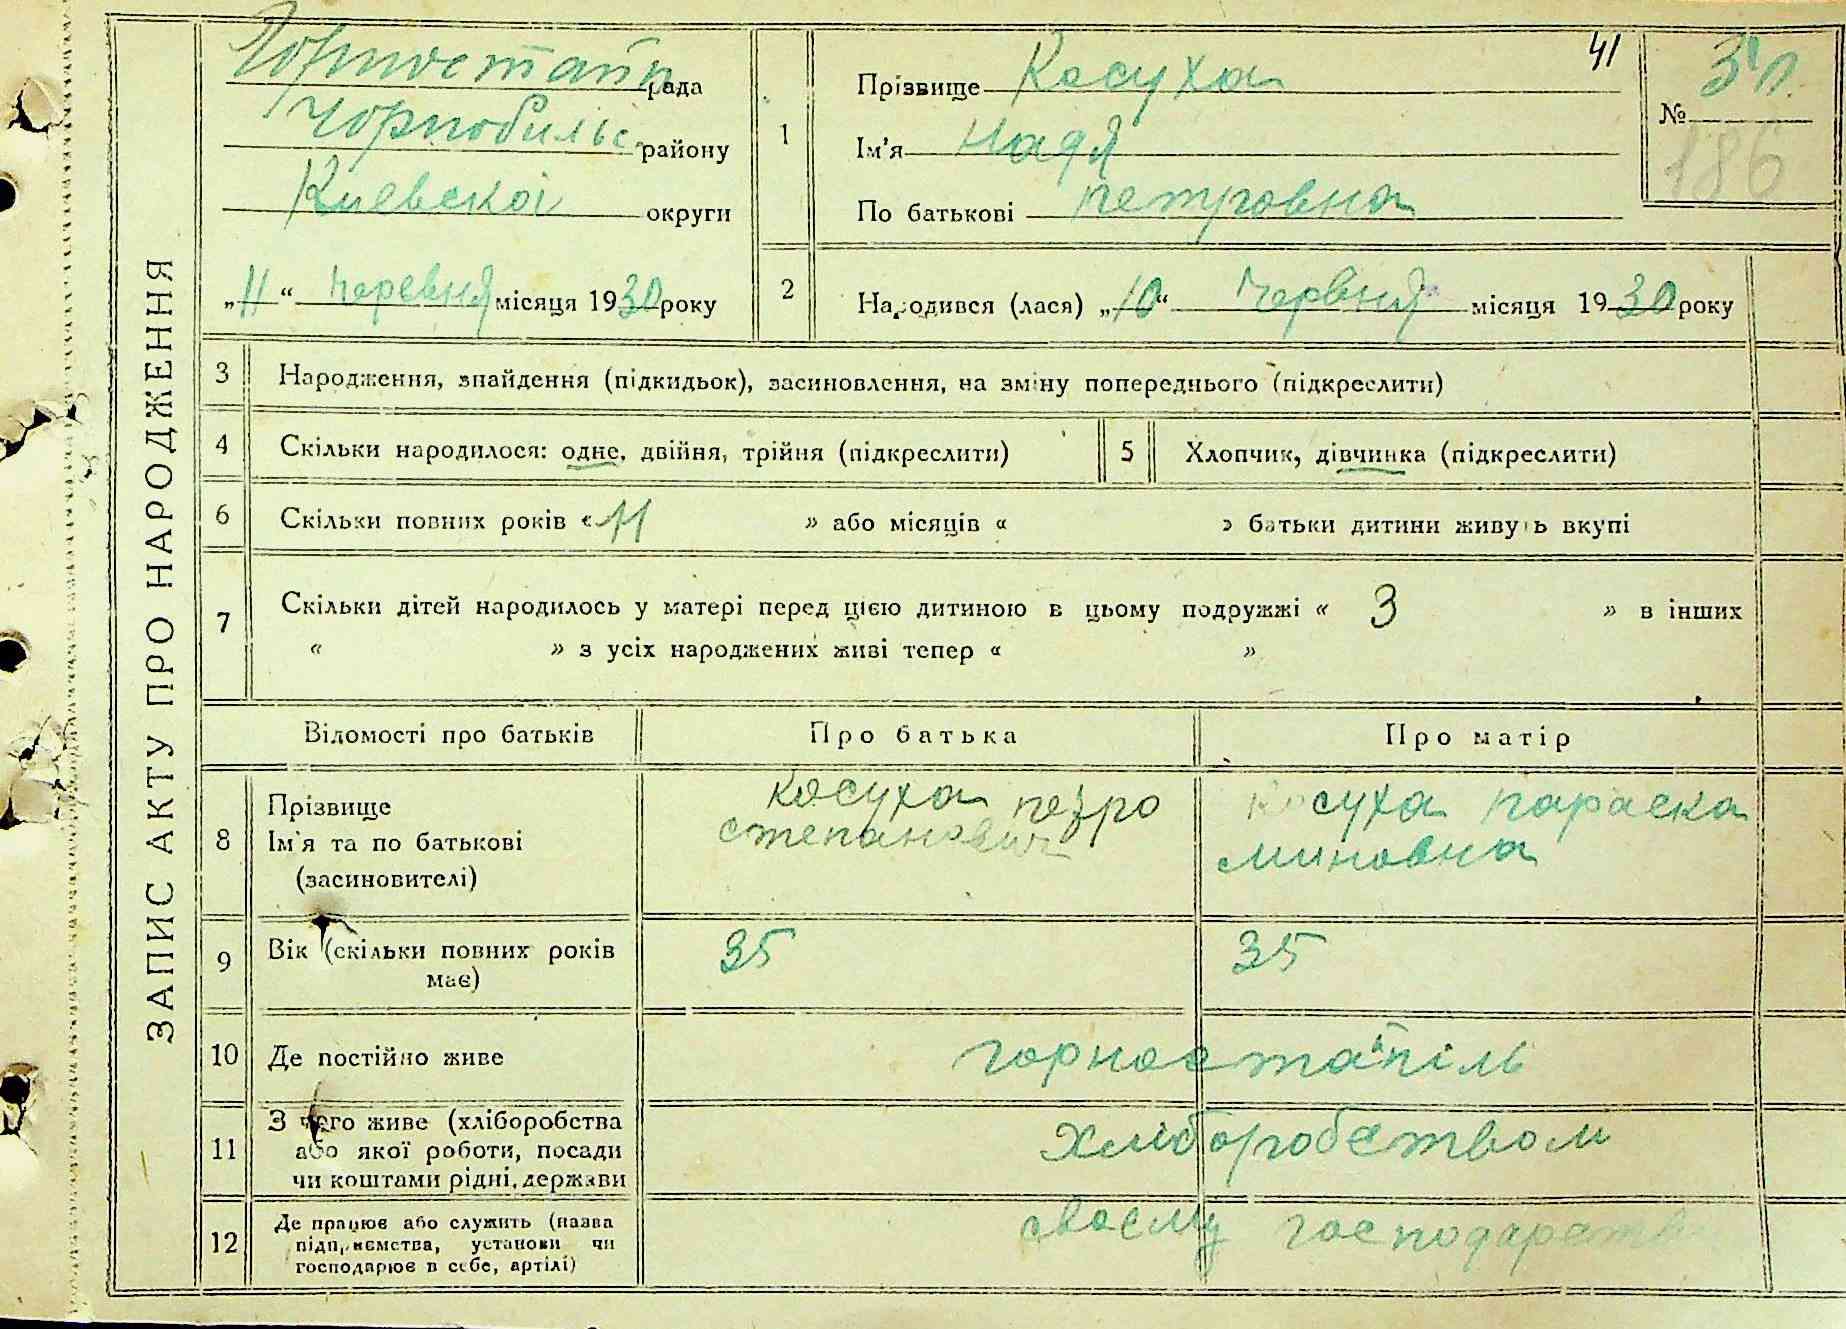 ЗАПИС АКТУ ПРО НАРОДЖЕННЯ
Горностайп рада
Чорнобильс району
Киевскоі округи
„11“ черевня місяця 1930 року
41
1 Прізвище Косуха
Ім'я Надя
По батькові петровна
№ 186
2 Народився (лася) „10“ Червня місяця 1930 року
3 Народження, знайдення (підкидьок), засиновлення, на зміну попереднього (підкреслити)
4 Скільки народилося: одне, двійня, трійня (підкреслити) 5 Хлопчик, дівчинка (підкреслити)
6 Скільки повних років « 11 » або місяців « » батьки дитини живуть вкупі
7 Скільки дітей народилось у матері перед цією дитиною в цьому подружжі « 3 » в інших
« » з усіх народжених живі тепер « »
Відомості про батьків Про батька Про матір
8 Прізвище
Ім'я та по батькові
(засиновителі)
косуха петро
степанович
косуха параска
миновна
9 Вік (скільки повних років
має)
35 35
10 Де постійно живе горностайпіль
11 З чего живе (хліборобства
або якої роботи, посади
чи коштами рідні, держави
Хліборобством
12 Де працює або служить (назва
підприємства, установи чи
господарює в себе, артілі)
своєму господарстві